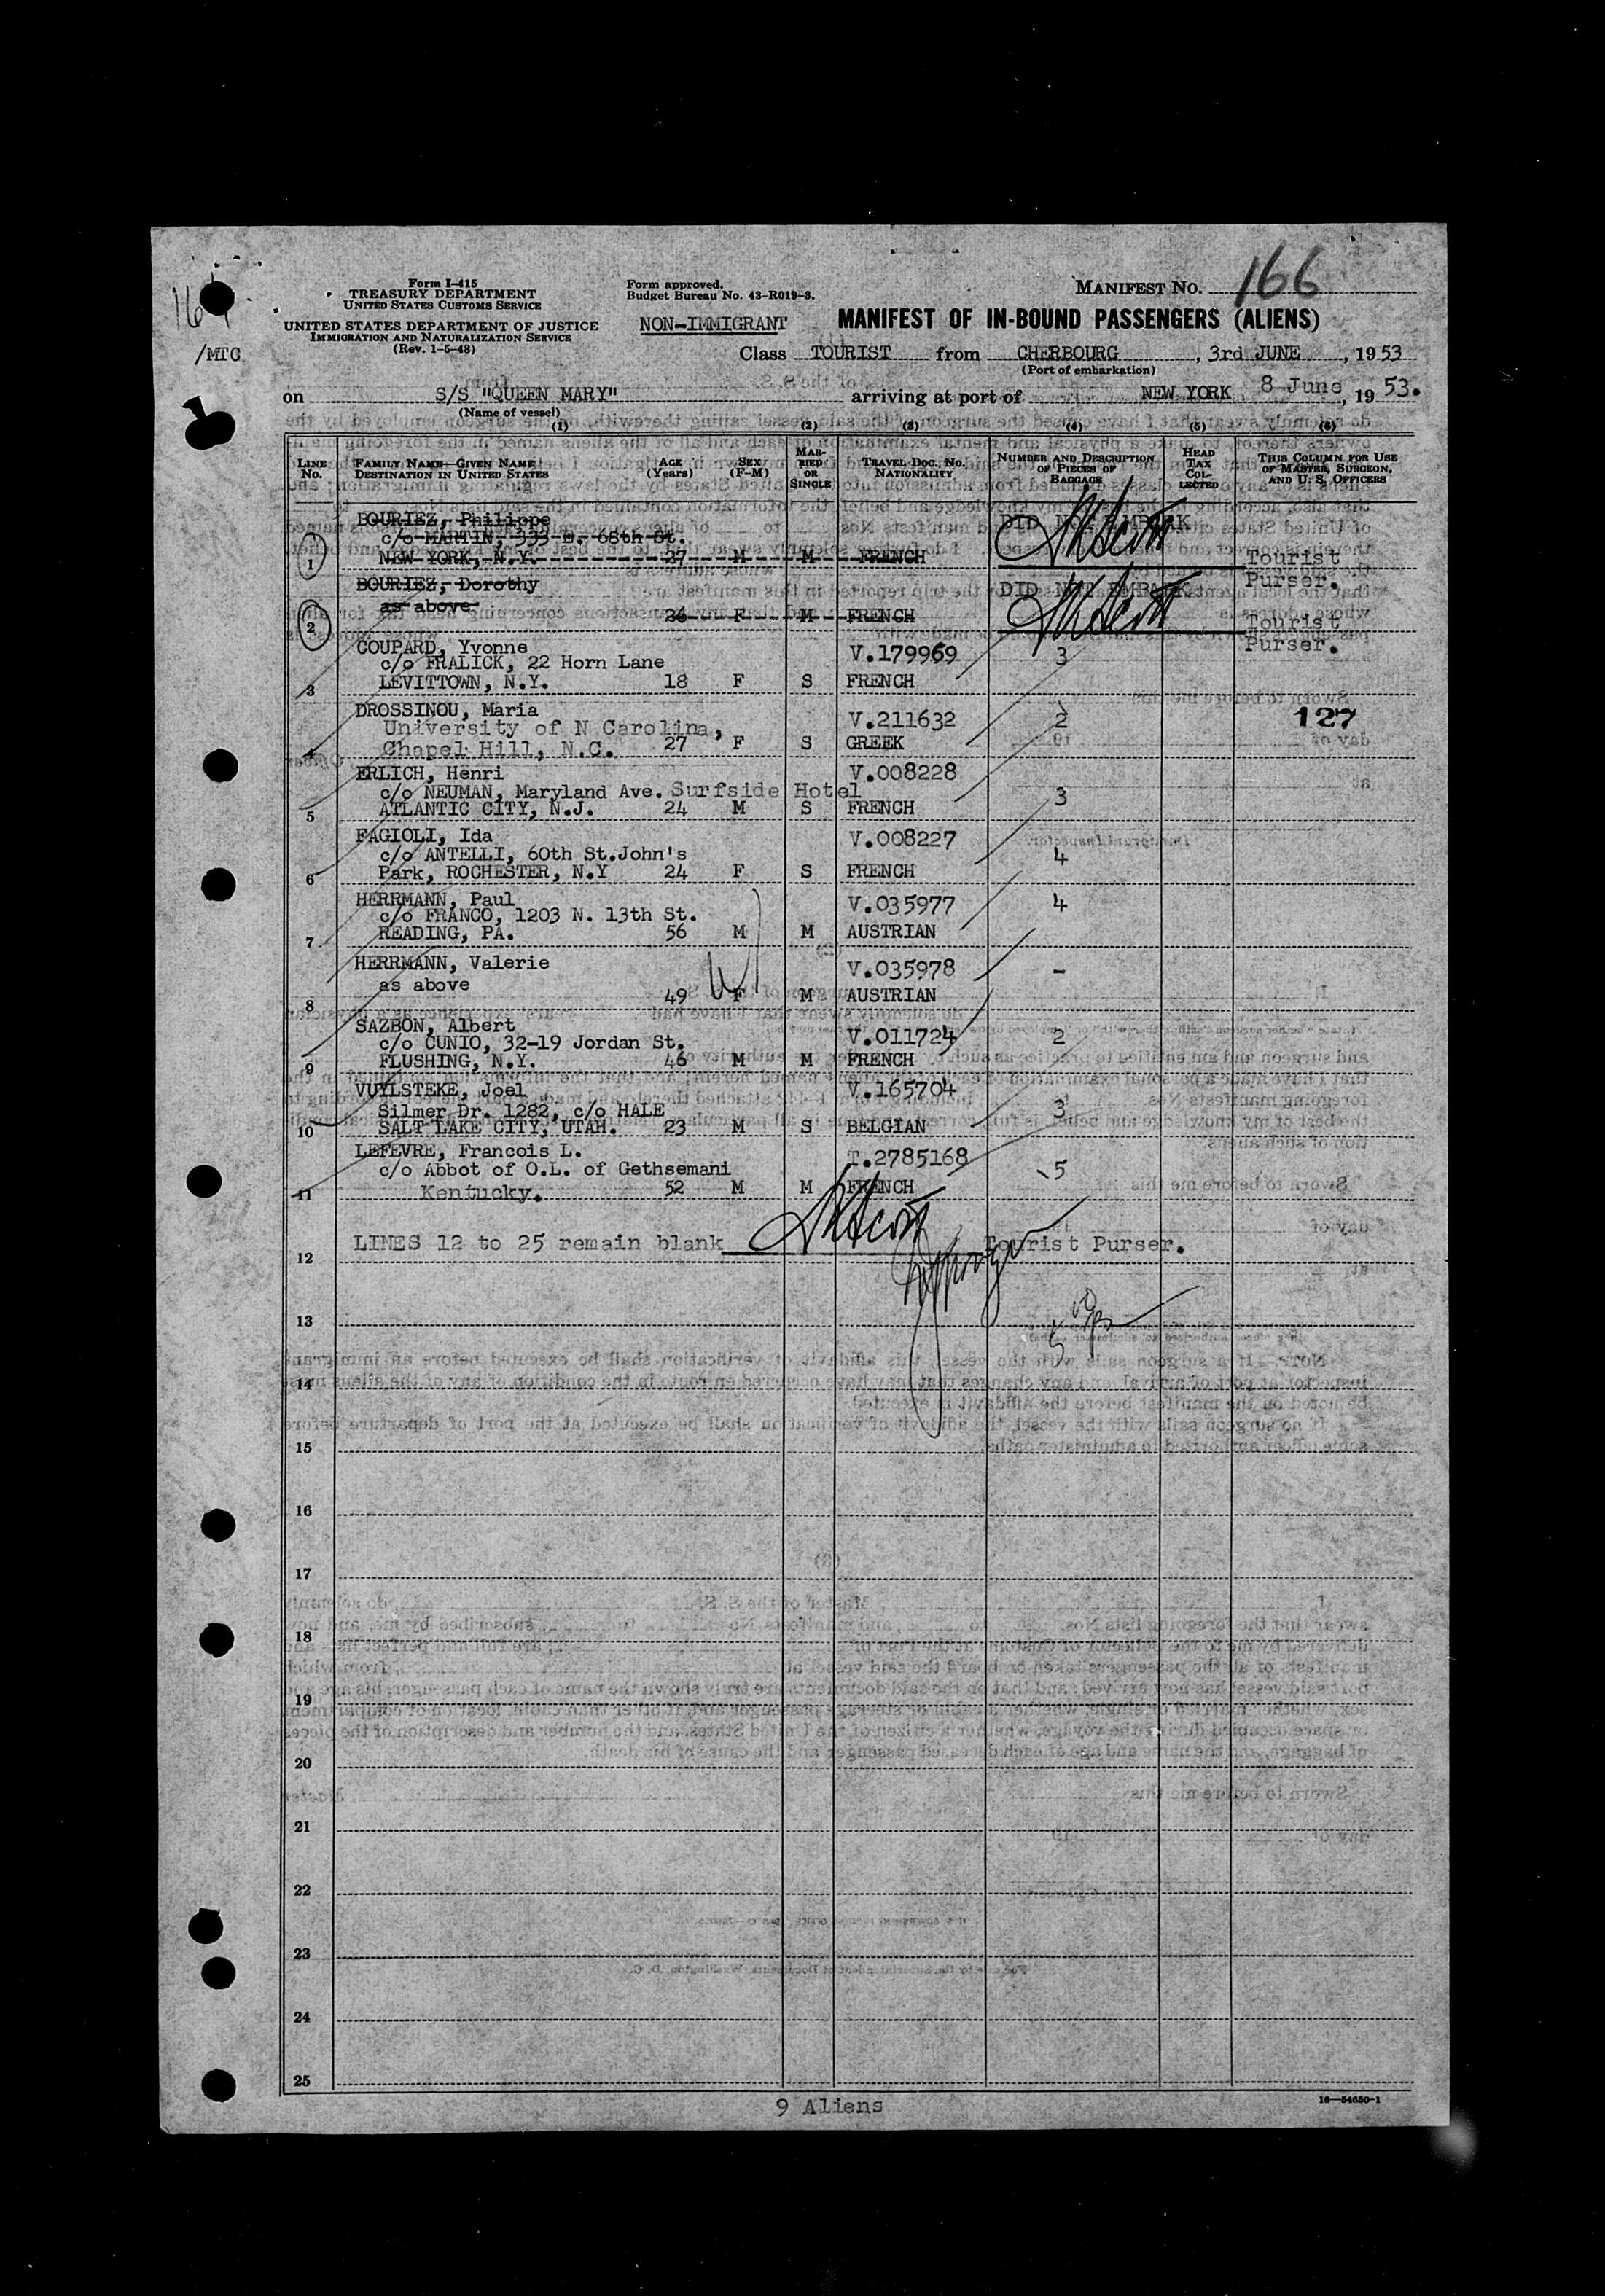 Form I-415
TREASURY DEPARTMENT
UNITED STATES CUSTOMS SERVICE
UNITED STATES DEPARTMENT OF JUSTICE
IMMIGRATION AND NATURALIZATION SERVICE
(Rev. 1-5-48)
/MTC
Form approved.
Budget Bureau No. 43-R019-3.
NON-IMMIGRANT
MANIFEST NO. 166
MANIFEST OF IN-BOUND PASSENGERS (ALIENS)
Class TOURIST from CHERBOURG, 3rd JUNE, 1953
(Port of embarkation)
on S/S "QUEEN MARY" arriving at port of NEW YORK 8 June, 19 53.
(Name of vessel)
(1) (2) (3) (4) (5) (6)
LINE NO. FAMILY NAME—GIVEN NAME DESTINATION IN UNITED STATES AGE (Years) SEX (F-M) MARRIED OR SINGLE TRAVEL DOC. NO. NATIONALITY NUMBER AND DESCRIPTION OF PIECES OF BAGGAGE HEAD TAX COLLECTED THIS COLUMN FOR USE OF MASTER, SURGEON, AND U. S. OFFICERS
BOURIEZ, Philippe DID NOT EMBARK
c/o MARTIN, 333 E. 68th St.
1 NEW YORK, N.Y. 27 M M FRENCH Tourist Purser.
BOURIEZ, Dorothy DID NOT EMBARK
as above
2 26 F M FRENCH Tourist Purser.
COUPARD, Yvonne V.179969 3
c/o FRALICK, 22 Horn Lane
3 LEVITTOWN, N.Y. 18 F S FRENCH
DROSSINOU, Maria V.211632 2 127
University of N Carolina,
4 Chapel Hill, N.C. 27 F S GREEK
ERLICH, Henri V.008228
c/o NEUMAN, Maryland Ave. Surfside Hotel 3
5 ATLANTIC CITY, N.J. 24 M S FRENCH
FAGIOLI, Ida V.008227
c/o ANTELLI, 60th St.John's 4
6 Park, ROCHESTER, N.Y 24 F S FRENCH
HERRMANN, Paul V.035977 4
c/o FRANCO, 1203 N. 13th St.
7 READING, PA. 56 M M AUSTRIAN
HERRMANN, Valerie V.035978 -
as above
8 49 F M AUSTRIAN
SAZBON, Albert V.011724 2
c/o CUNIO, 32-19 Jordan St.
9 FLUSHING, N.Y. 46 M M FRENCH
VUYLSTEKE, Joel V.165704
Silmer Dr. 1282, c/o HALE 3
10 SALT LAKE CITY, UTAH. 23 M S BELGIAN
LEFEVRE, Francois L. T.2785168
c/o Abbot of O.L. of Gethsemani 5
11 Kentucky. 52 M M FRENCH
LINES 12 to 25 remain blank Tourist Purser.
12
13
14
15
16
17
18
19
20
21
22
23
24
25
9 Aliens
16—54650-1